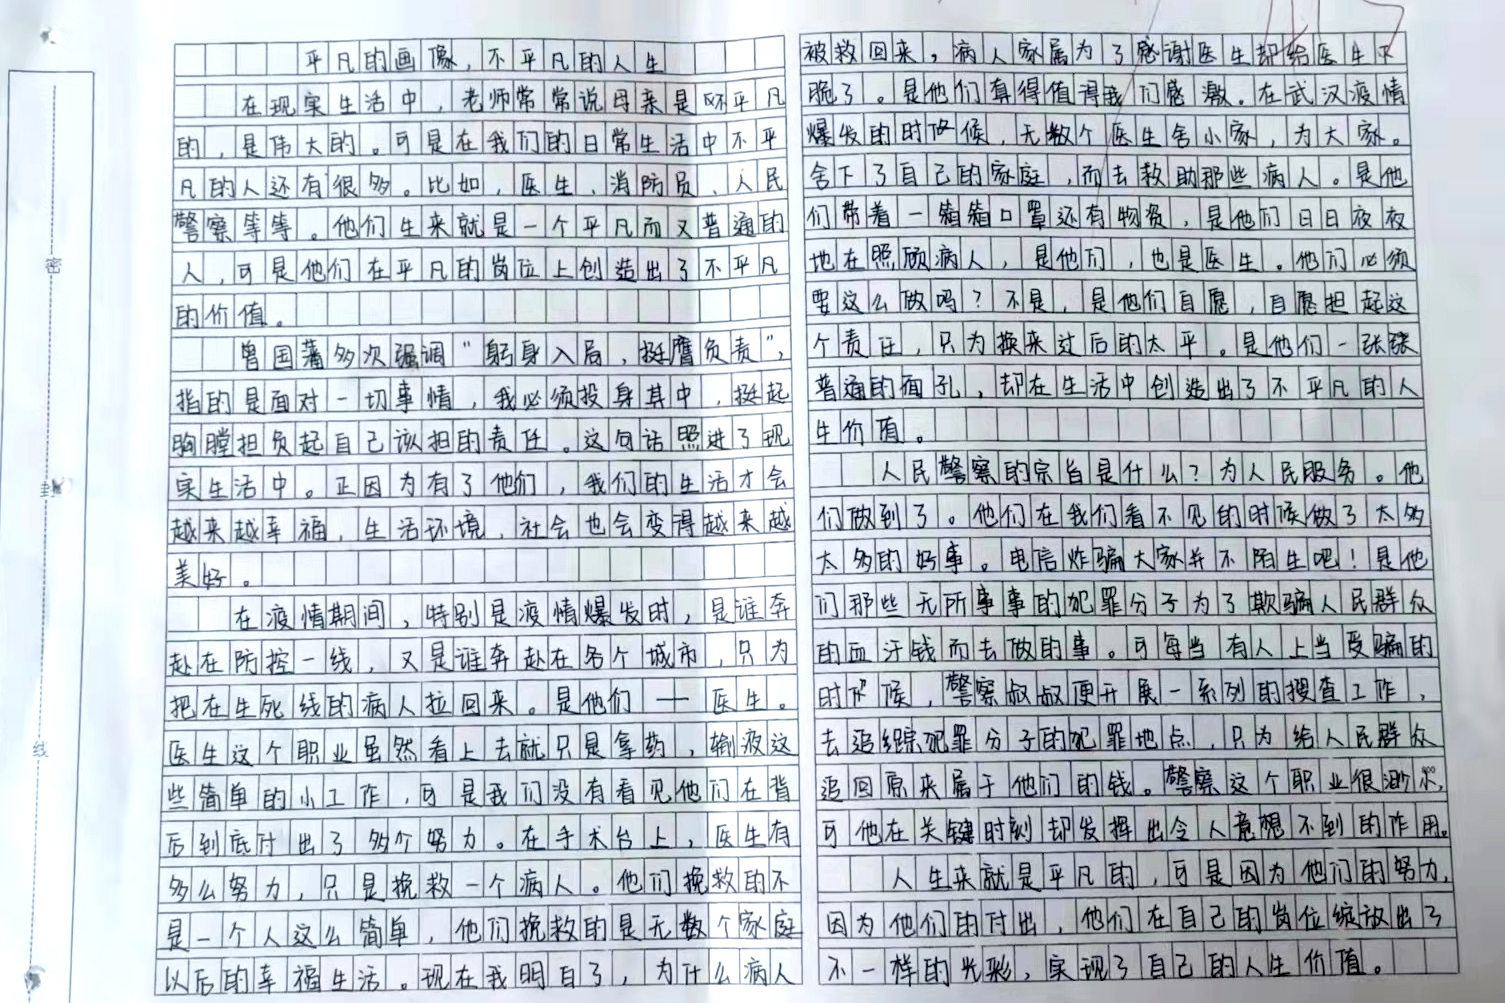 平凡的画像，不平凡的人生
在现实生活中，老师常常说母亲是不平凡
的，是伟大的。可是在我们的日常生活中不平
凡的人还有很多。比如，医生、消防员、人民
警察等等。他们生来就是一个平凡而又普通的
人，可是他们在平凡的岗位上创造出了不平凡
的价值。
曾国藩多次强调"躬身入局，挺膺负责"，
指的是面对一切事情，我必须投身其中，挺起
胸膛担负起自己该担的责任。这句话照进了现
实生活中。正因为有了他们，我们的生活才会
越来越幸福，生活环境，社会也会变得越来越
美好。
在疫情期间，特别是疫情爆发时，是谁奔
赴在防控一线，又是谁奔赴在各个城市，只为
把在生死线的病人拉回来。是他们——医生。
医生这个职业虽然看上去就只是拿药，输液这
些简单的小工作，可是我们没有看见他们在背
后到底付出了多个努力。在手术台上，医生有
多么努力，只是挽救一个病人。他们挽救的不
是一个人这么简单，他们挽救的是无数个家庭
以后的幸福生活。现在我明白了，为什么病人
被救回来，病人家属为了感谢医生却给医生下
跪了。是他们真得值得我们感激。在武汉疫情
爆发的时候，无数个医生舍小家，为大家。
舍下了自己的家庭，而去救助那些病人。是他
们带着一箱箱口罩还有物资，是他们日日夜夜
地在照顾病人，是他们，也是医生。他们必须
要这么做吗？不是，是他们自愿，自愿担起这
个责任，只为换来过后的太平。是他们一张张
普通的面孔，却在生活中创造出了不平凡的人
生价值。
人民警察的宗旨是什么？为人民服务。他
们做到了。他们在我们看不见的时候做了太多
太多的好事。电信炸骗大家并不陌生吧！是他
们那些无所事事的犯罪分子为了欺骗人民群众
的血汗钱而去做的事。可每当有人上当受骗的
时候，警察叔叔便开展一系列的搜查工作，
去追踪犯罪分子的犯罪地点，只为给人民群众
追回原来属于他们的钱。警察这个职业很渺小，
可他在关键时刻却发挥出令人意想不到的作用。
人生来就是平凡的，可是因为他们的努力，
因为他们的付出，他们在自己的岗位绽放出了
不一样的光彩，实现了自己的人生价值。
密
封
线